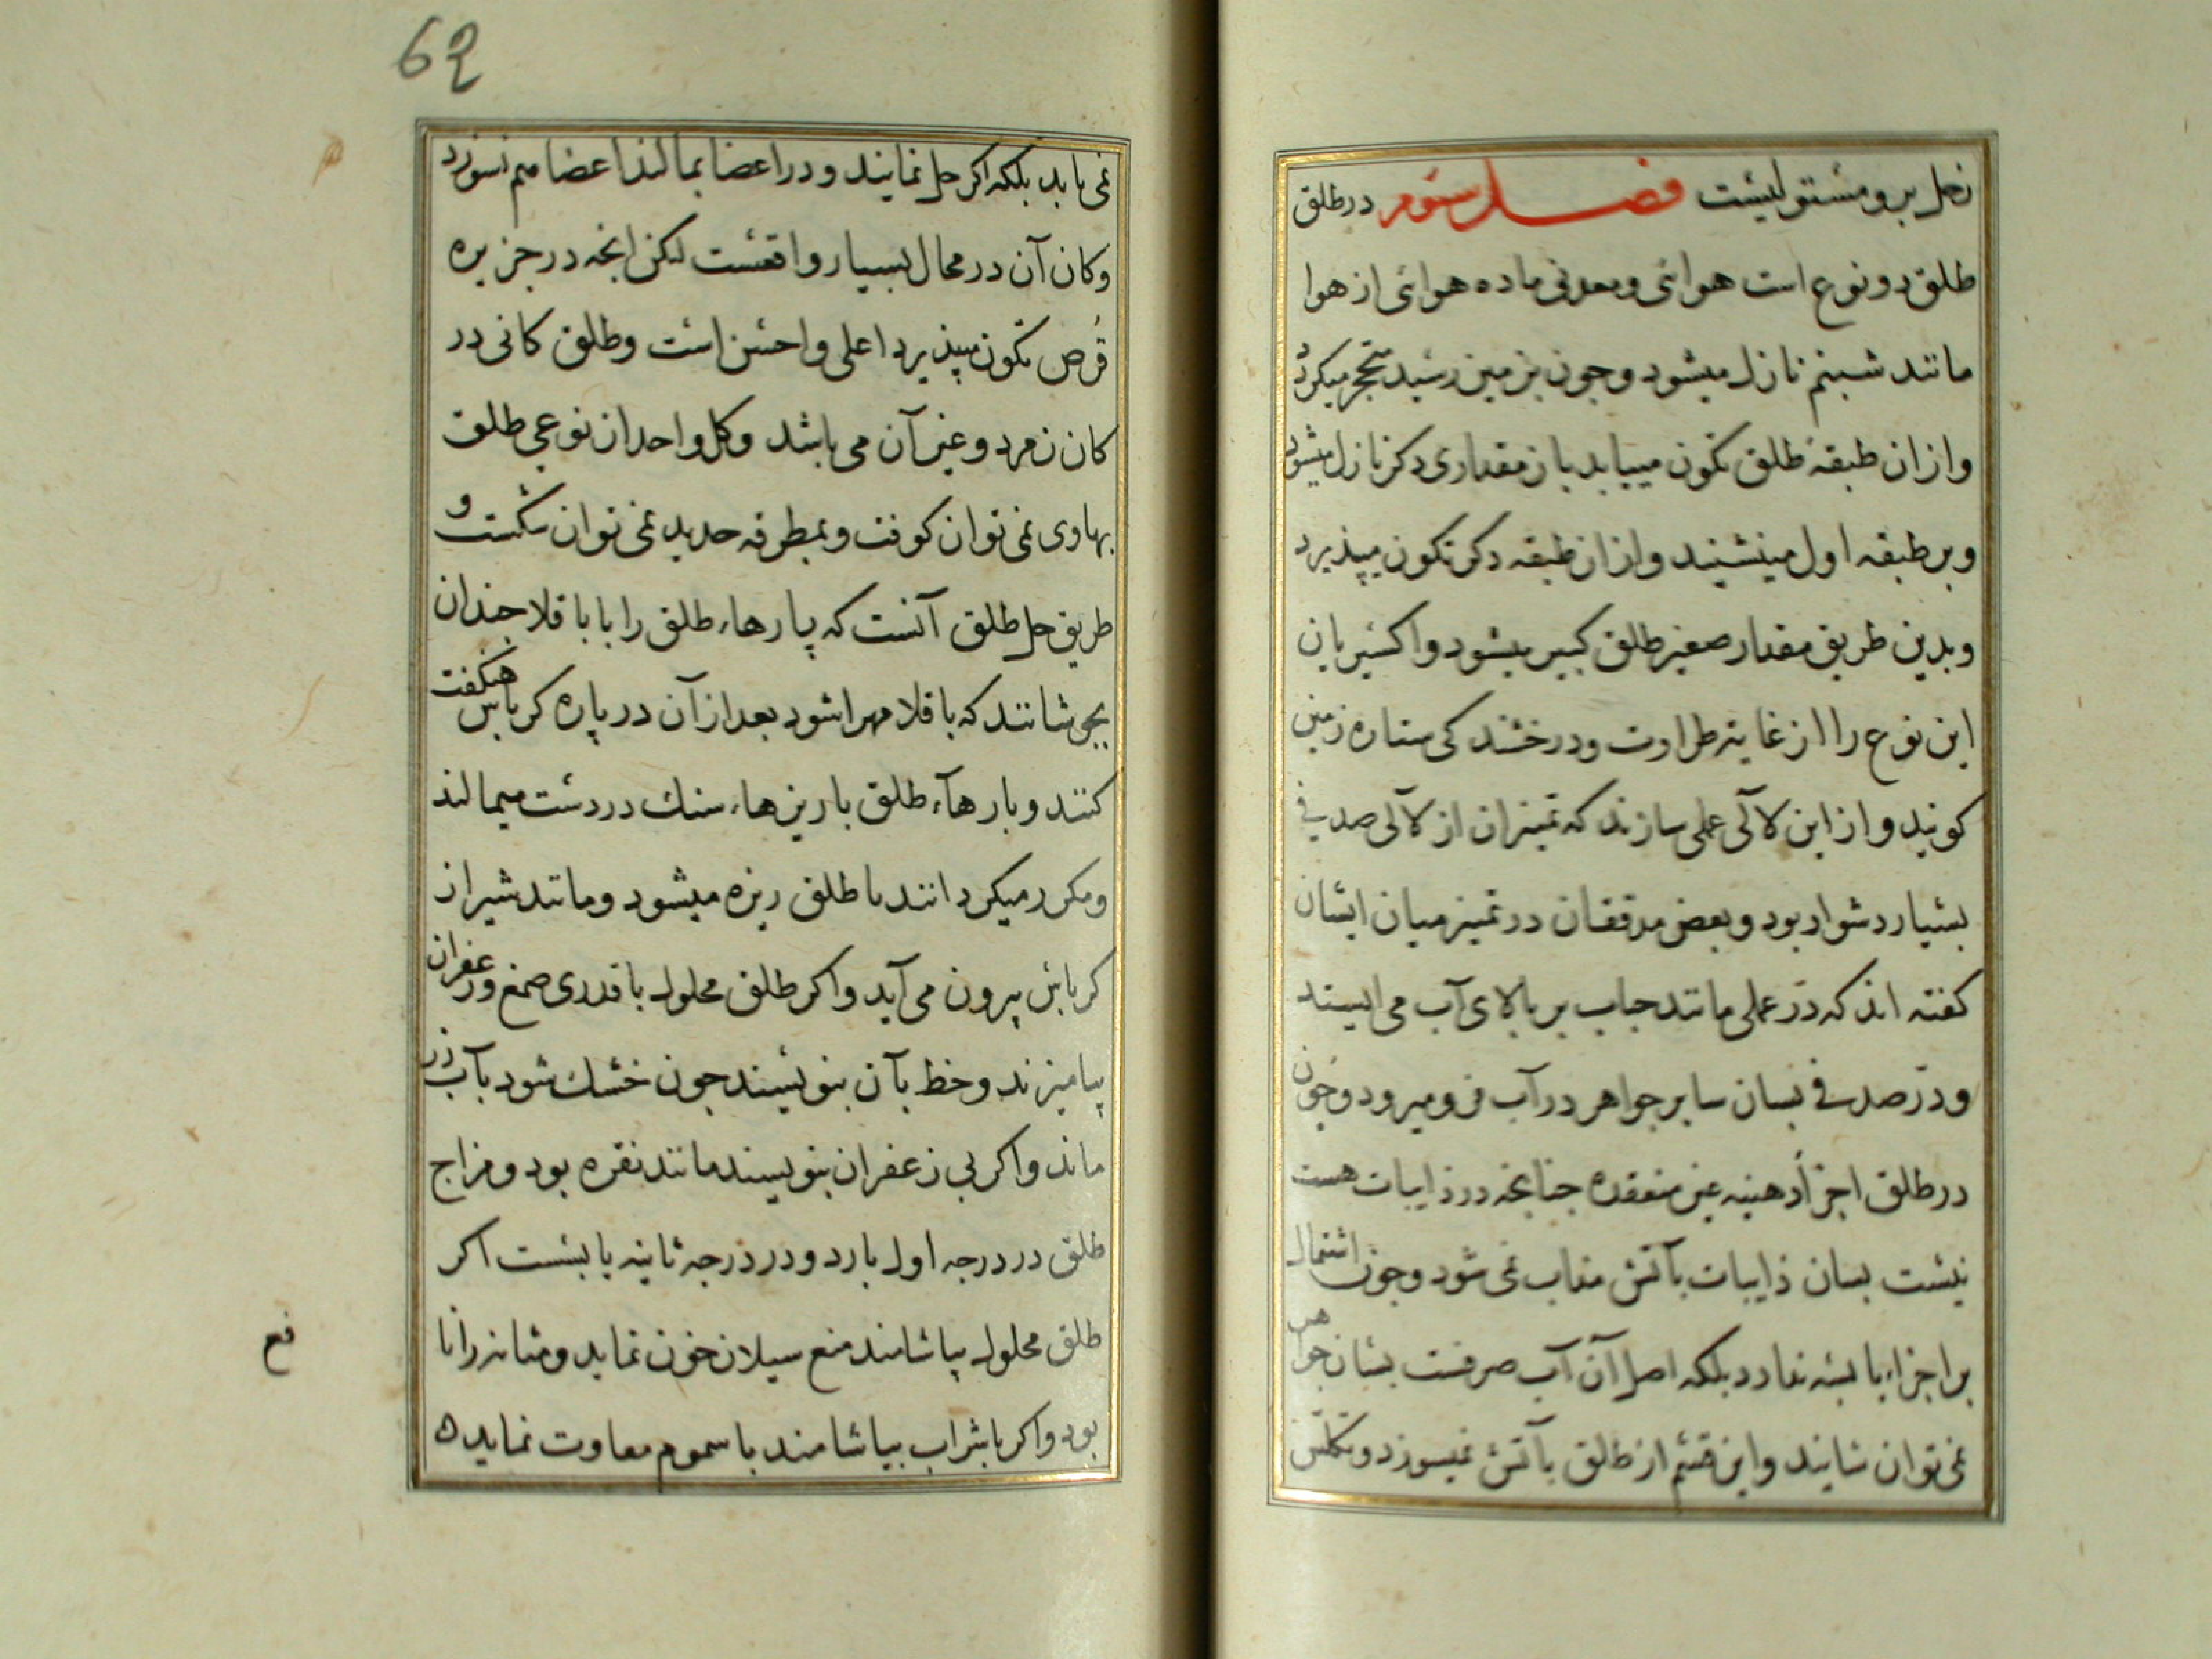 زحل برو مستولیست فصل سئوم در طلق
طلق دو نوع است هوائی و معدنی ماده هوائی از هوا
مانند شبنم نازل میشود و جون بزمین رسید متحجر میکردد
و ازان طبقهٔ طلق تکون مییابد باز مقداری دکر نازل میشود
و بر طبقه اول مینشیند و ازان طبقه دکر تکون میپذیرد
و بدین طریق مقدار صغیر طلق کبیر میشود و اکسیریان
این نوع را از غایة طراوت و درخشندکی ستاره زمین
کویند و از این لآلی عملی سازند که تمیزان از لآلی صدفی
بسیار دشوار بود و بعض مدققان در تمیز میان ایشان
کفته اند که در عملی مانند حباب بر بالای آب می ایستد
و در صدفی بسان سایر جواهر در آب فرو میرود و جون
در طلق اجزأ دهنیه غیر منعقده جنانجه در ذایبات هست
نیست بسان ذایبات بآتش مذاب نمی شود و جون اشتمال
بر اجزاء یابسه ندارد بلکه اصل آن آب صرفست بسان جواهر
نمی توان سایند و این قسم از طلق بآتش نمیسوزد و تکلس
نمی یابد بلکه اکر حل نمایند و در اعضا بمالند اعضا هم نسوزد
و کان آن در محال بسیار واقعست لکن انجه در جزیره
قرص تکون میپذیرد اعلی و احسن است و طلق کانی در
کان زمرد و غیر آن می باشد و کل واحد از نوعی طلق
بهاوی نمی توان کوفت و بمطرقه حدید نمی توان شکست و
طریق حل طلق آنست که پارهاء طلق را با باقلا جندان
بجوشانند که باقلا مهرا شود بعد از آن در پاره کرباس هنکفت
کنند و بارهآء طلق با ریزهاء سنك در دست میمالند
و مکرر میکردانند تا طلق ریزه میشود و مانند شیر از
کرباس بیرون می آید و اکر طلق محلول با قدری صمغ و زعفران
بیامیزند و خط بآن بنویسند جون خشك شود بآب زر
ماند و اکر بی زعفران بنویسند مانند نقره بود و مزاج
طلق در درجه اول بارد و در درجه ثانیه یابسست اکر
طلق محلول بیاشامند منع سیلان خون نماید و مثانه را نا
فع
بود و اکر با شراب بیاشامند با سموم مقاوت نماید ه
62